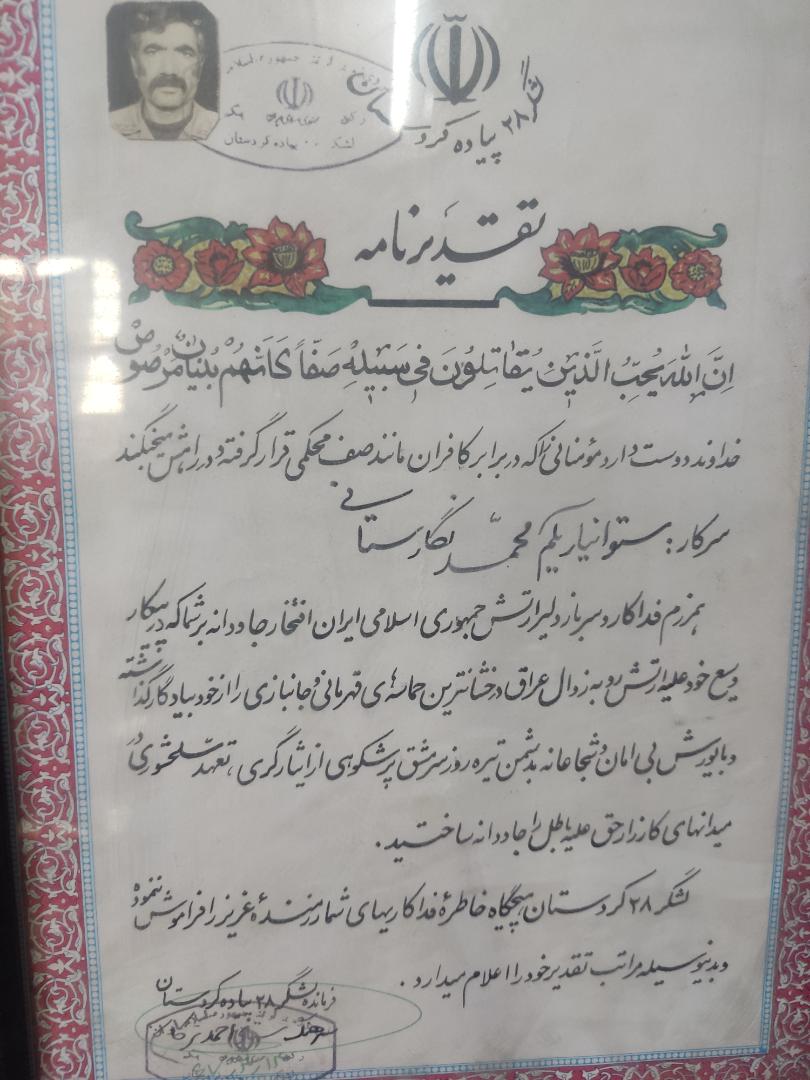 لشگر ۲۸ پیاده کردستان
لشگر ۰۰ پیاده کردستان
تقدیرنامه
اِنَّ اللهَ یُحِبُّ الَّذینَ یُقاتِلُونَ فی سَبیلِهِ صَفّاً کَاَنَّهُمْ بُنْیانٌ مَرْصُوصٌ
خداوند دوست دارد مؤمنانی را که در برابر کافران مانند صف محکمی قرار گرفته و در راهش میجنگند
سرکار: ستوانیار یکم محمّد نگارستانی
همرزم فداکار و سرباز دلیر ارتش جمهوری اسلامی ایران افتخار جاودانه بر شما که در پیکار
وسیع خود علیه ارتش رو به زوال عراق درخشانترین حماسه‌های قهرمانی و جانبازی را از خود بیادگار گذاشته
و با یورش بی امان و شجاعانه بدشمن تیره روز سرمشق پرشکوهی از ایثارگری، تعهد سلحشوری در
میدانهای کارزار حق علیه باطل را جاودانه ساختید.
لشگر ۲۸ کردستان هیچگاه خاطرهٔ فداکاریهای شما رزمندهٔ عزیز را فراموش ننموده
و بدینوسیله مراتب تقدیر خود را اعلام میدارد.
فرمانده لشگر ۲۸ پیاده کردستان
سرهنگ احمد ترکان